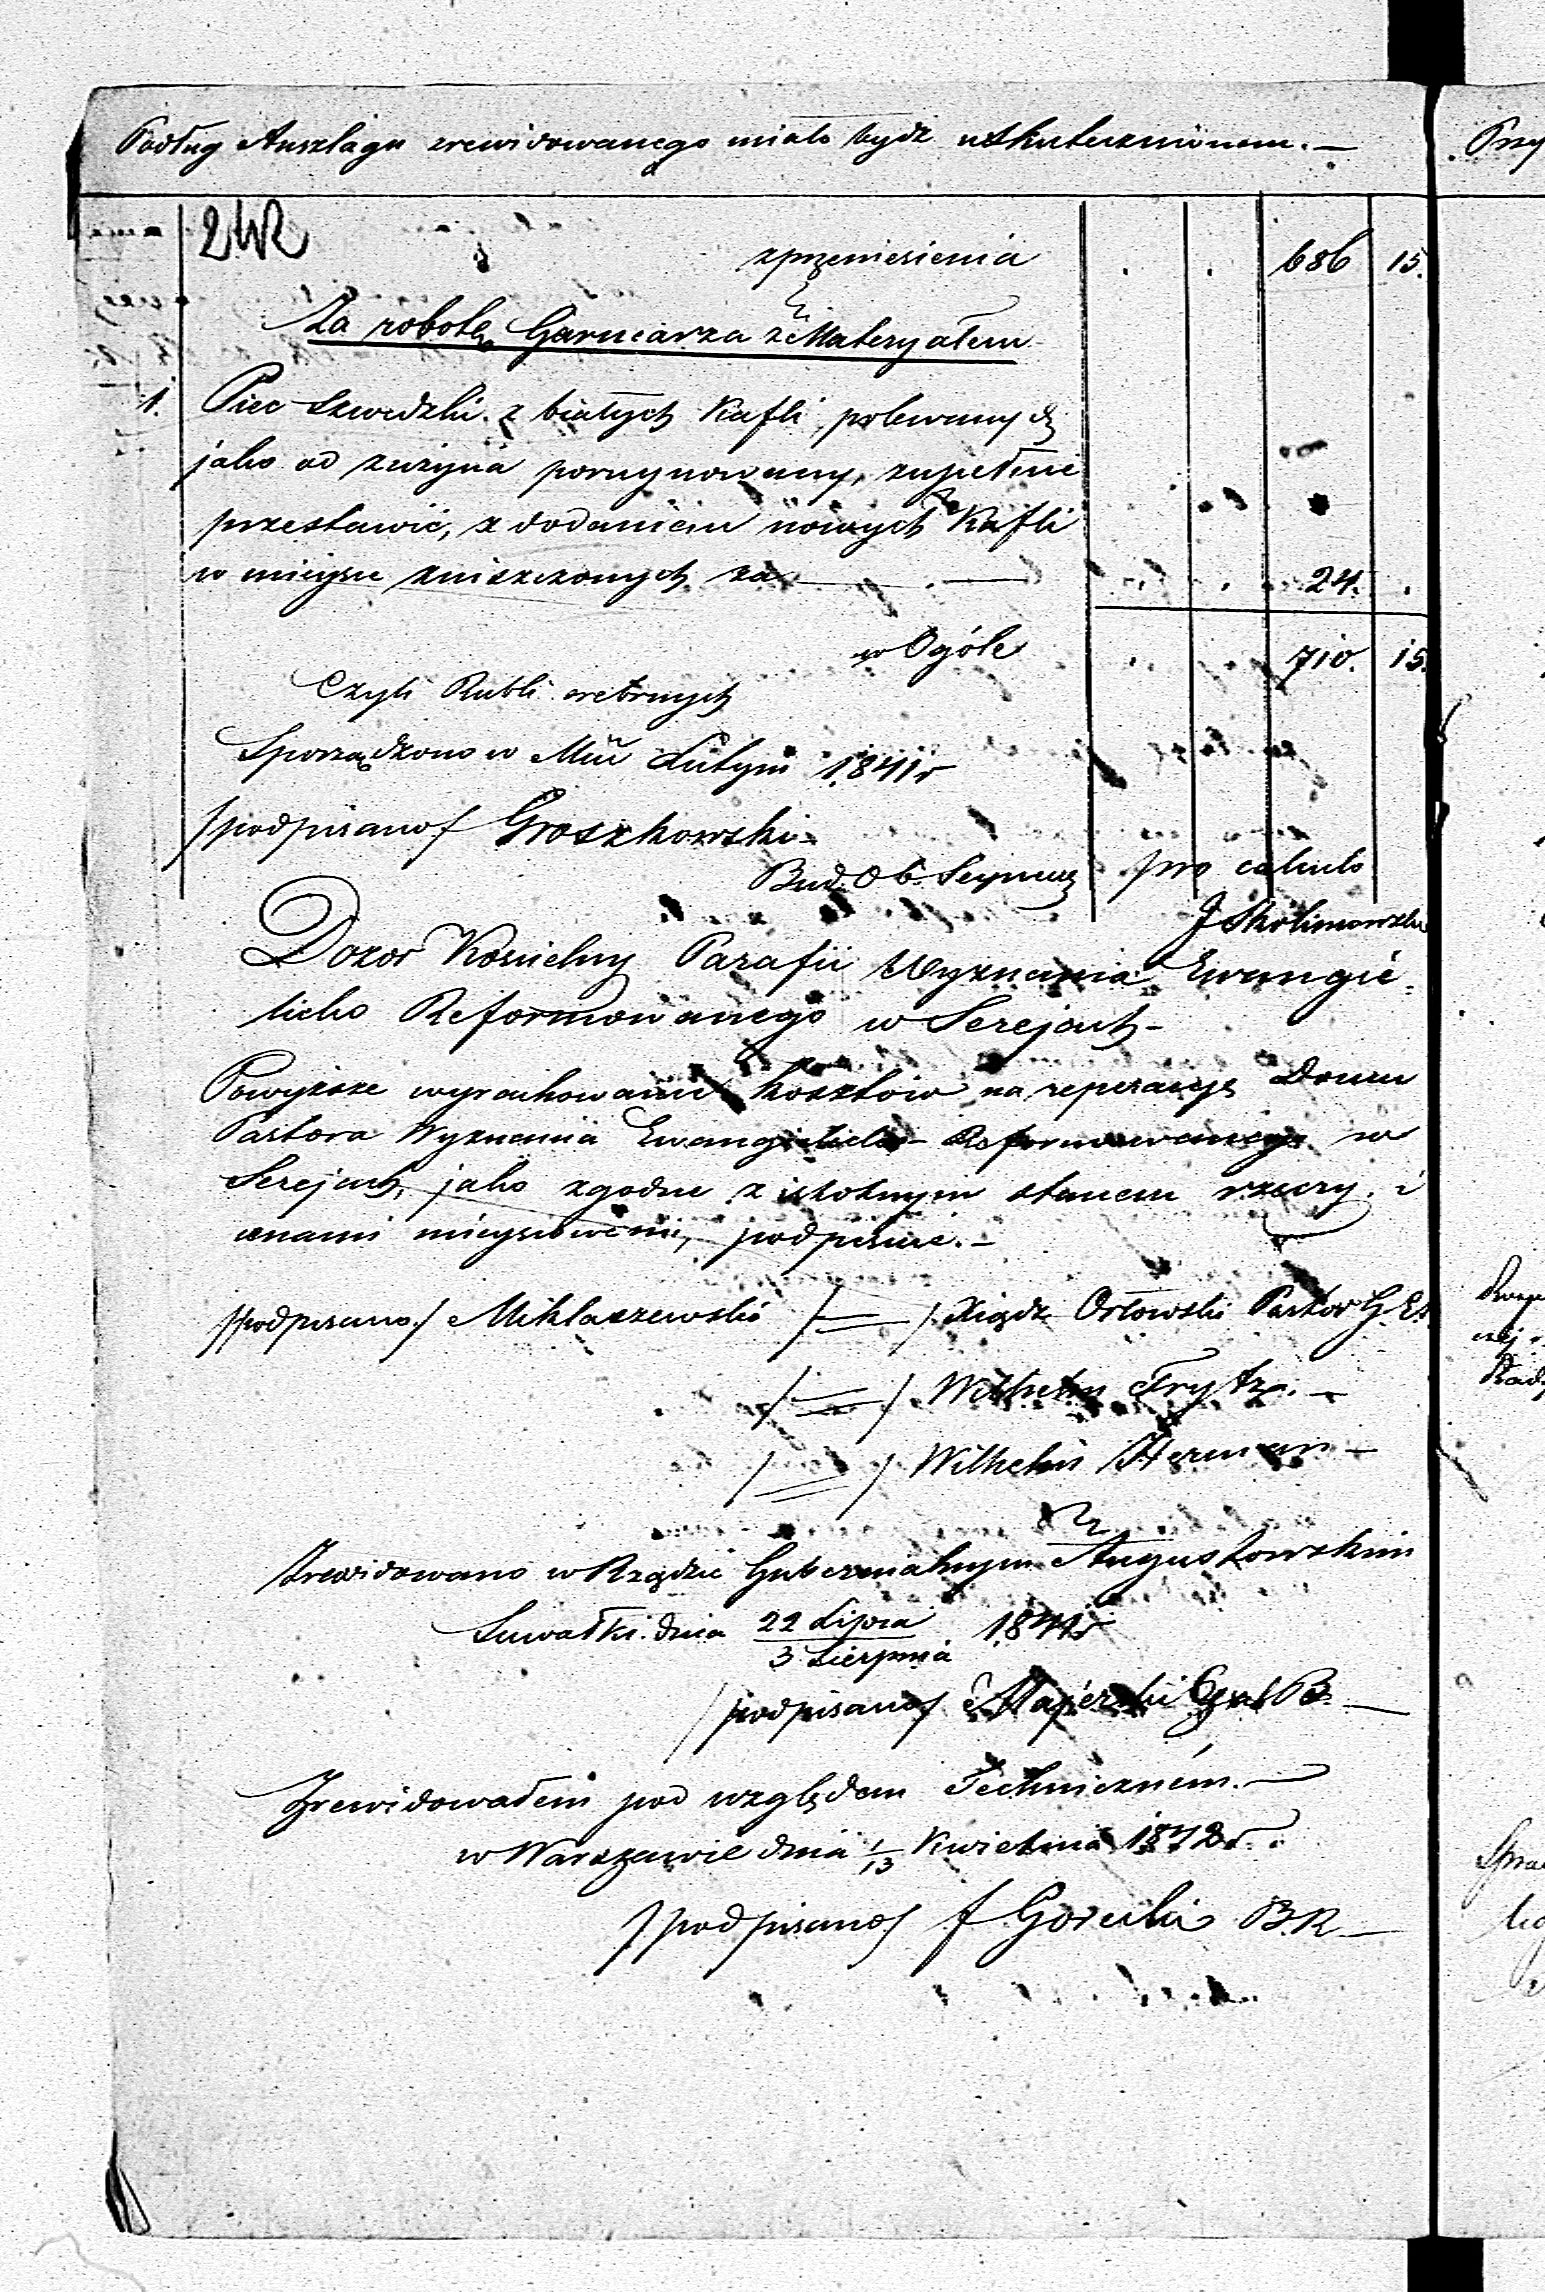 Podług Anszlagu zrewidowanego miało bydź uskutecznionem. —
242
z przeniesienia . . 686 15.
Za robotę Garncarza z Materyałem
1. Piec szwedzki z białych Kafli polewanych
jako od zużycia porujnowany, zupełnie
przestawić, z dodaniem nowych Kafli
w mieysce zniszczonych za — . — . . 24. .
w Ogóle . . 710. 15.
Czyli Rubli srebrnych
Sporządzono w Mcu Lutym 1841 r
/podpisano/ Groszkowski
Bud. Ob. Seynens
pro calculo
J Skolimowski
Dozor Kościelny Parafii Wyznania Ewangie-
licko Reformowanego w Serejach —
Powyższe wyrachowanie kosztów na reperacyę Domu
Pastora Wyznania Ewangelicko — Reformowanego w
Serejach, jako zgodne z istotnym stanem rzeczy i
cenami mieyscowemi, podpisuie. —
/podpisano/ Miklaszewski /=/ Xiądz Orłowski Pastor G. Ew.
/=/ Wilhelm Frytz. —
/=/ Wilhelm Herman —
Zrewidowano w Rządzie Gubernialnym Augustowskim
Suwałki dnia 22 Lipca / 3 Sierpnia 1841 r
/podpisano/ Majerski
Zrewidowałem pod względem Techniczném. —
w Warszawie dnia 1/13 Kwietnia 1842 r.
/podpisano/ f Gorecki B.R —